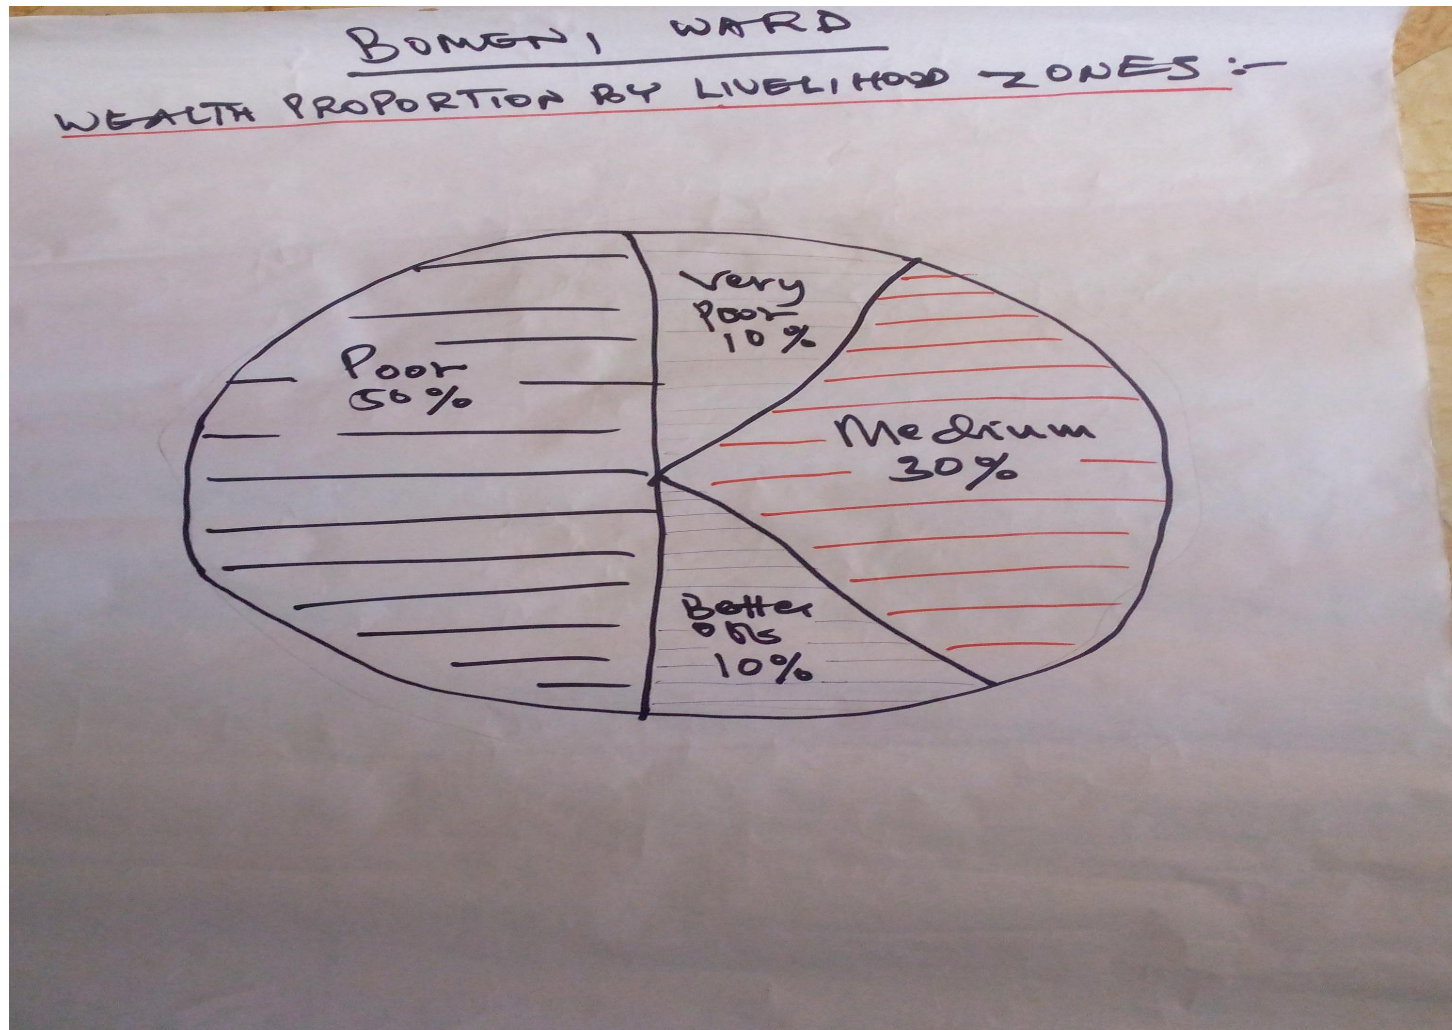 BOMENI WARD
WEALTH PROPORTION BY LIVELIHOOD ZONES :-
Very
Poor
10%
Poor
50%
Medium
30%
Better
offs
10%